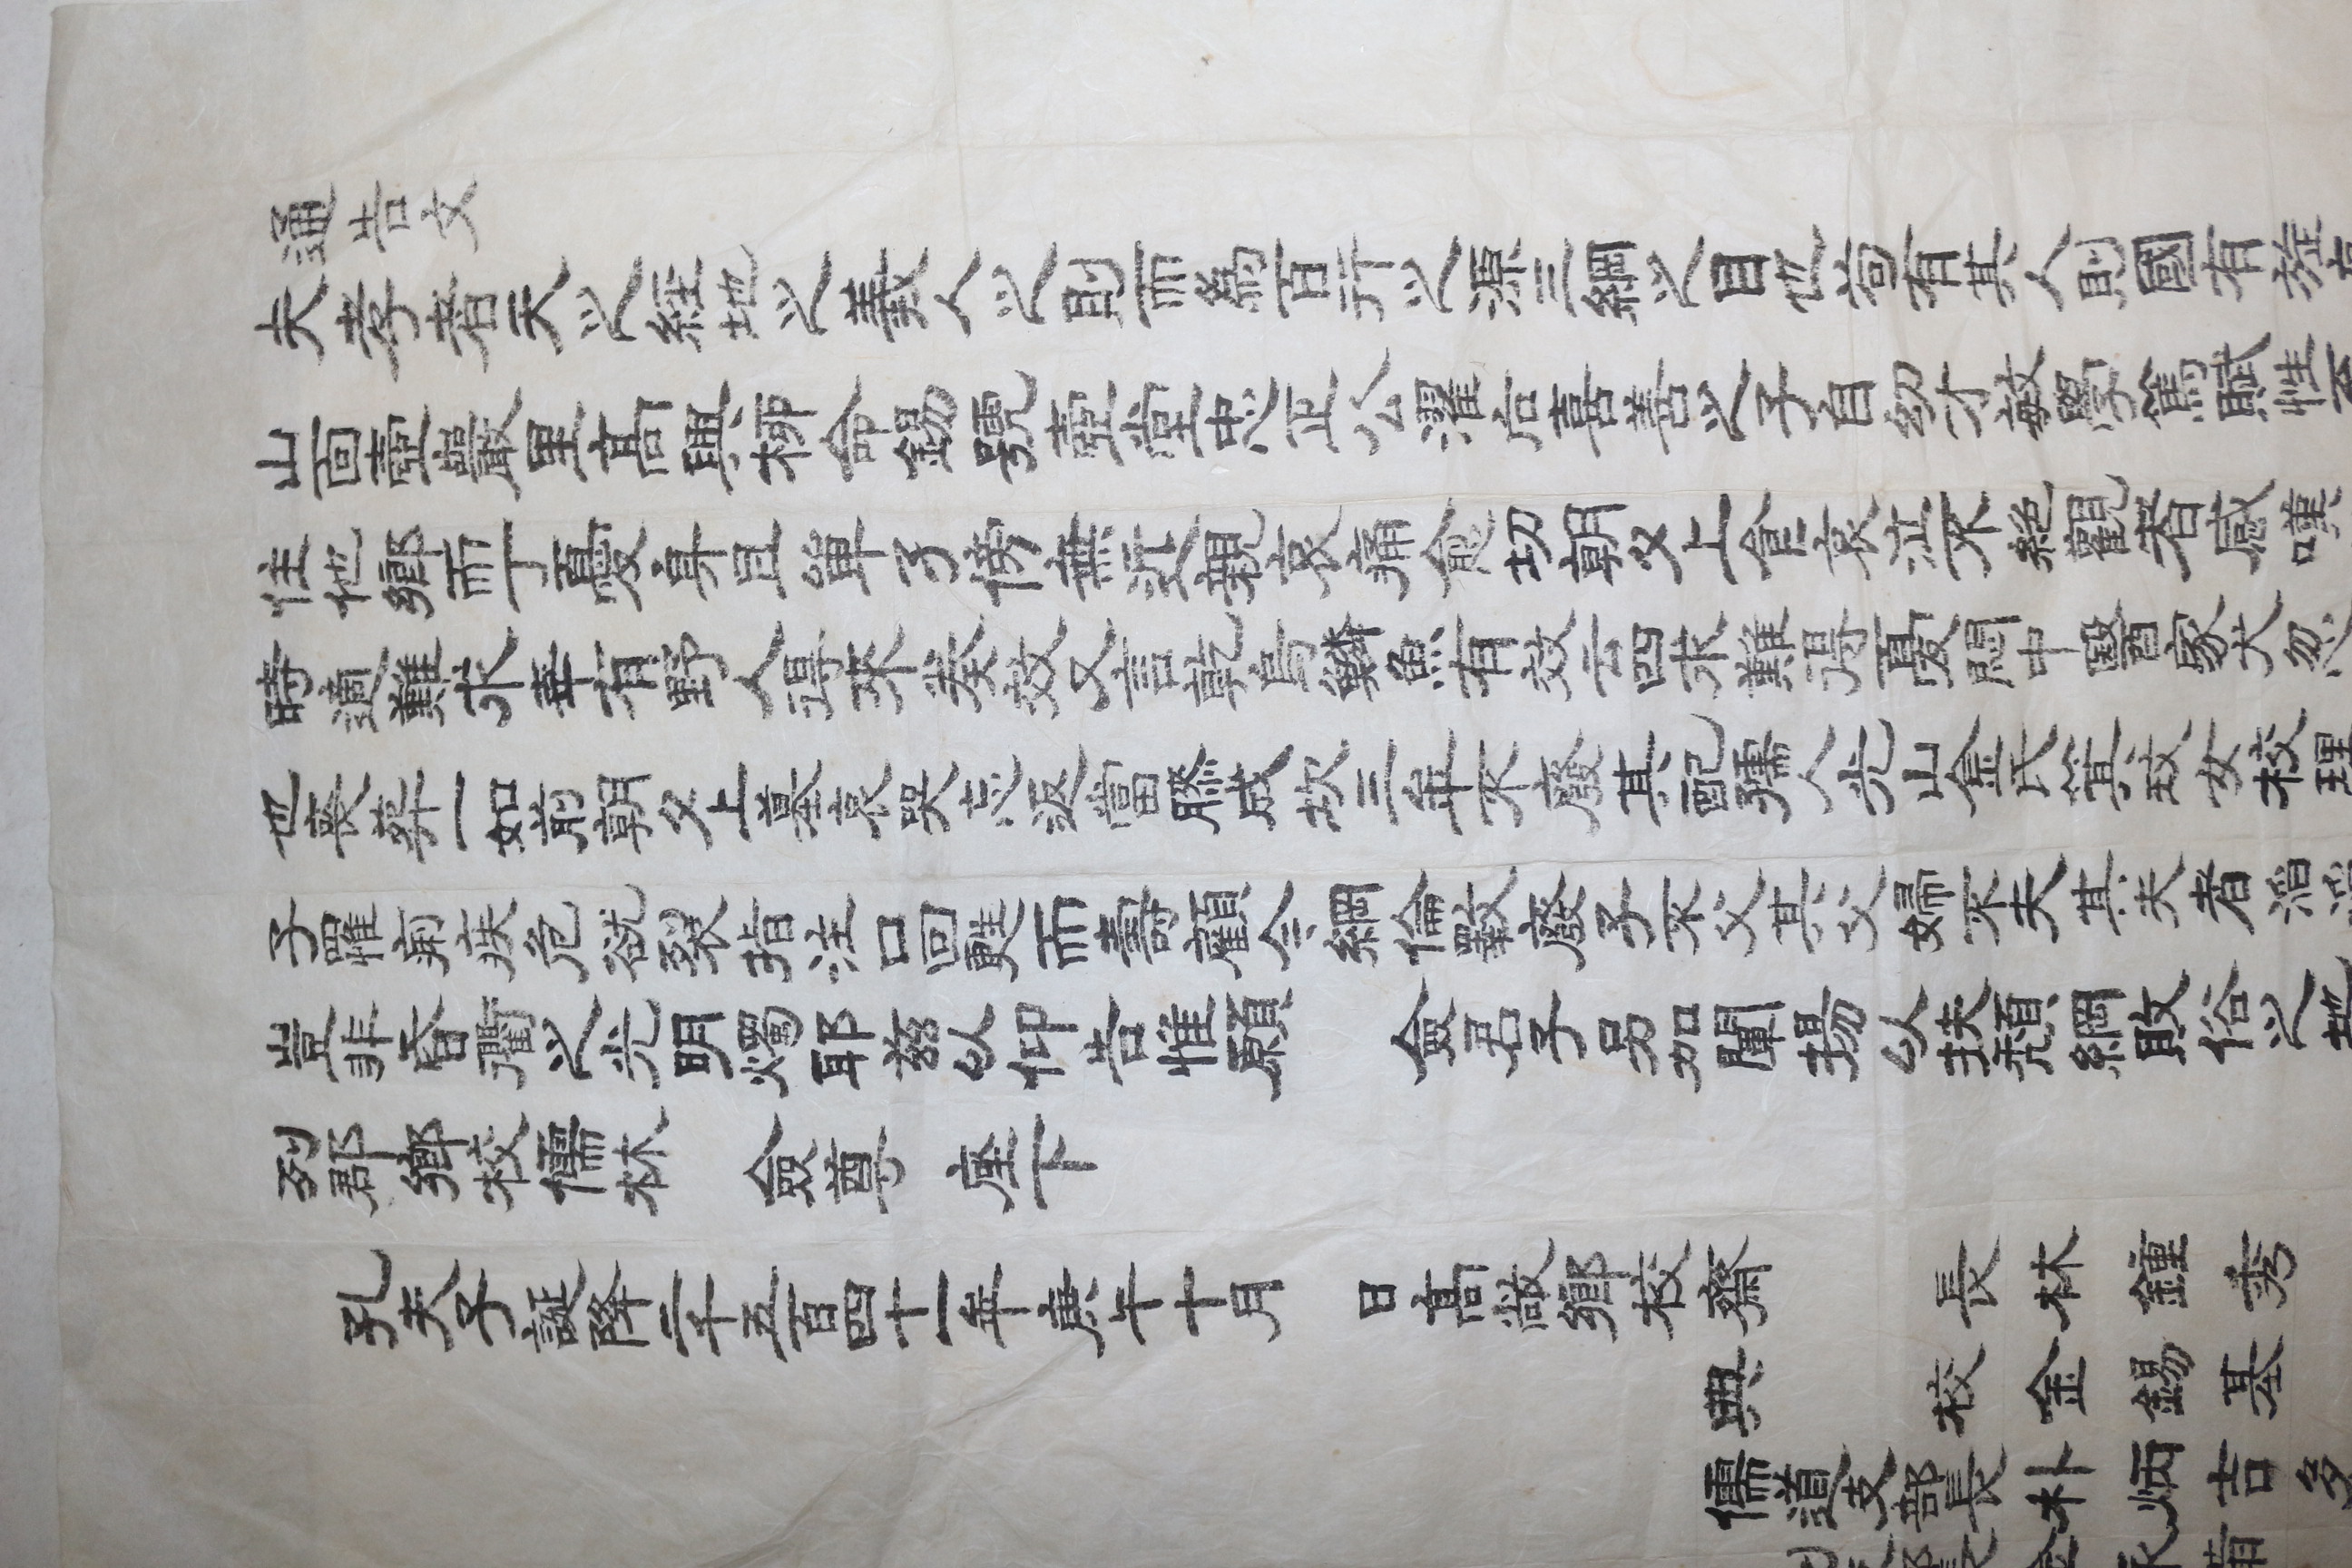 通告文
夫孝者天之經地之義人之則而爲百行之源三綱之目也苟有其人則國有旌
山面壺巖里高興柳命錫號壺堂忠正公濯后喜善之子自幼才敏學篤賦性
住他鄕而丁憂身且單孑傍無近親哀痛愈切朝夕上食哀泣不絶觀者感嘆
時適難求幸有野人得來差效又言乾烏鱉魚有效云四求難得憂悶中醫家犬忽
也喪葬一如前朝夕上墓哀哭忘返當騰成坎三年不廢其配孺人光山金氏箕玟女校理
子罹病疾危欲裂指注口回甦而壽顧今綱倫斁廢子不父其父婦不夫其夫者滔滔
豈非昏衢之光明燭耶玆以仰告惟願 僉君子另加闡揚以扶頹綱敗俗之地
列郡鄕校儒林 僉尊 座下
孔夫子誕降二千五百四十一年庚午十月 日高敞鄕校齋
長林鍾秀
典 校金錫基
儒道支部長朴炳吉